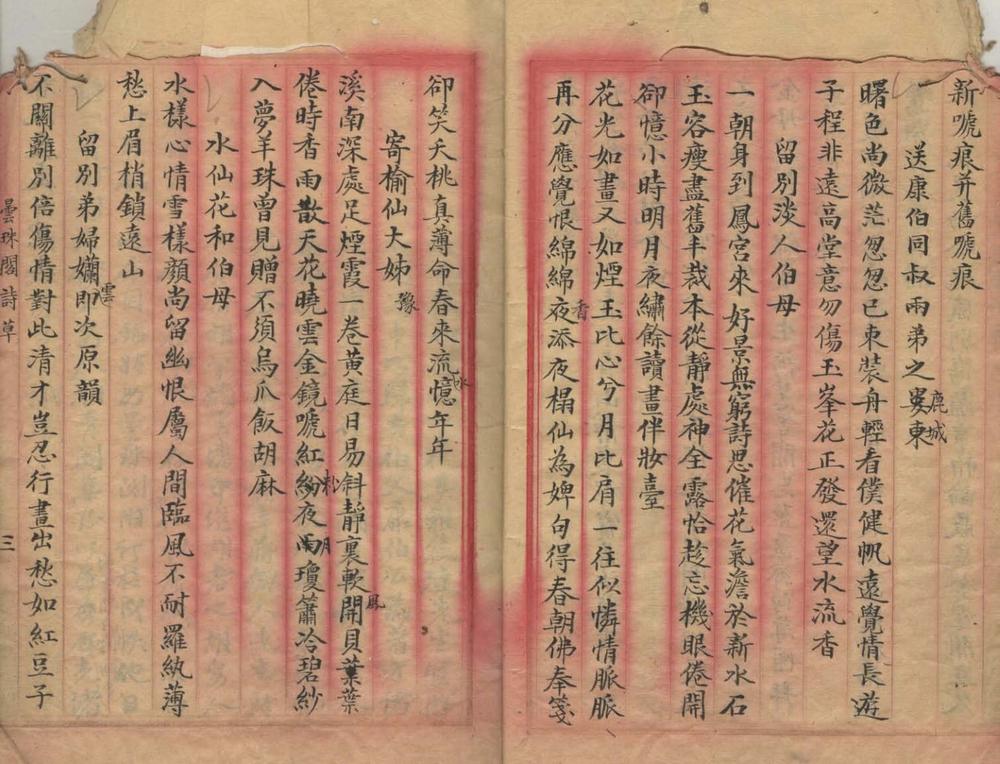 新嗁痕并舊嗁痕
送康伯同叔兩弟之婁東
鹿城
曙色尚微茫忽忽已束裝舟輕看僕健帆遠覺情長遊
子程非遠高堂意勿傷玉峯花正發還望水流香
留別淡人伯母
一朝身到鳳宮來好景無窮詩思催花氣澹於新水石
玉容瘦盡舊羊裁本從靜處神全露恰趁忘機眼倦開
卻憶小時明月夜繡餘讀畫伴妝臺
花光如畫又如煙玉比心兮月比肩一往似憐情脈脈
再分應覺恨綿綿夜添夜榻仙為婢句得春朝佛奉箋
香
卻笑夭桃真薄命春來流憶年年
水
寄榆仙大姊
豫
溪南深處足煙霞一卷黃庭日易斜靜裏軟開貝葉葉
風
倦時香雨散天花曉雲金鏡嗁紅紛夜雨瓊簫冷碧紗
月
入夢羊珠曾見贈不須烏爪飯胡麻
水仙花和伯母
水樣心情雪樣顏尚留幽恨屬人間臨風不耐羅紈薄
愁上眉梢鎖遠山
留別弟婦嬭即次原韻
雲
不關離別倍傷情對此清才豈忍行畫出愁如紅豆子
曇珠閣詩草
三